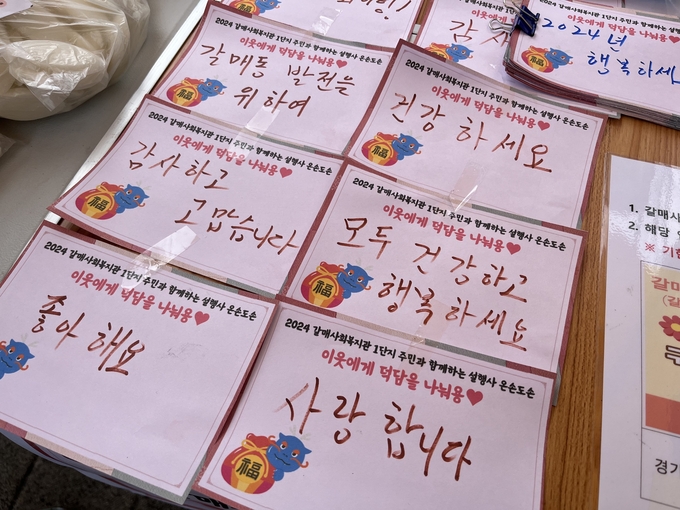 2024 갈매사회복지관 1단지 주민과 함께하는 설행사 온손도손
이웃에게 덕담을 나눠용♥
갈매동 발전을
위하여
福
2024 갈매사회복지관 1단지 주민과 함께하는 설행사 온손도손
이웃에게 덕담을 나눠용♥
건강하세요
福
2024 갈매사회복지관 1단지 주민과 함께하는 설행사 온손도손
이웃에게 덕담을 나눠용♥
감사하고
고맙습니다
福
2024 갈매사회복지관 1단지 주민과 함께하는 설행사 온손도손
이웃에게 덕담을 나눠용♥
모두 건강하고
행복하세요
福
2024 갈매사회복지관 1단지 주민과 함께하는 설행사 온손도손
이웃에게 덕담을 나눠용♥
좋아해요
2024 갈매사회복지관 1단지 주민과 함께하는 설행사 온손도손
이웃에게 덕담을 나눠용♥
사랑합니다
福
2024 갈매사회복지관 1단지
이웃에게
감사
이웃에게 덕담을 나눠용♥
2024년
행복하세
1. 갈매사
2. 해당
※ 기한
갈매
경기